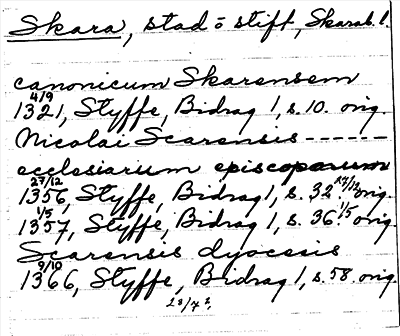 Skara, stad o stift, Skarab. l.
canonicum Skarensem
4/9
1321, Styffe, Bidrag 1, s. 10. orig.
Nicolai Scarensis ------
ecclesiarum episcoporum
27/12
1356, Styffe, Bidrag 1, s. 32 27/12 orig.
1/5
1357, Styffe, Bidrag 1, s. 36 1/5 orig.
Scarensis dyocesis
9/10
1366, Styffe, Bidrag 1, s. 58. orig.